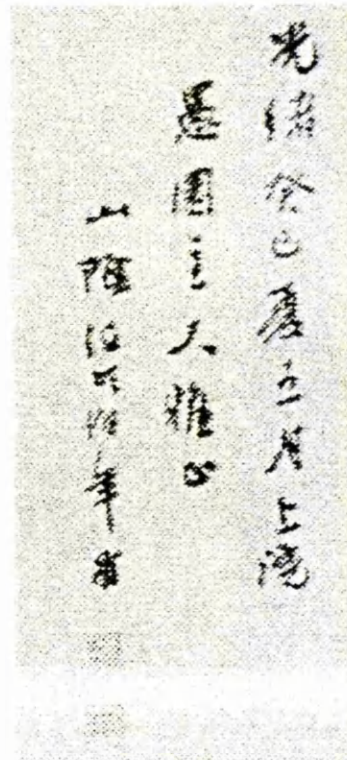 光緒癸巳夏五月上浣
愚園主人雅正
山陰任頤伯年甫